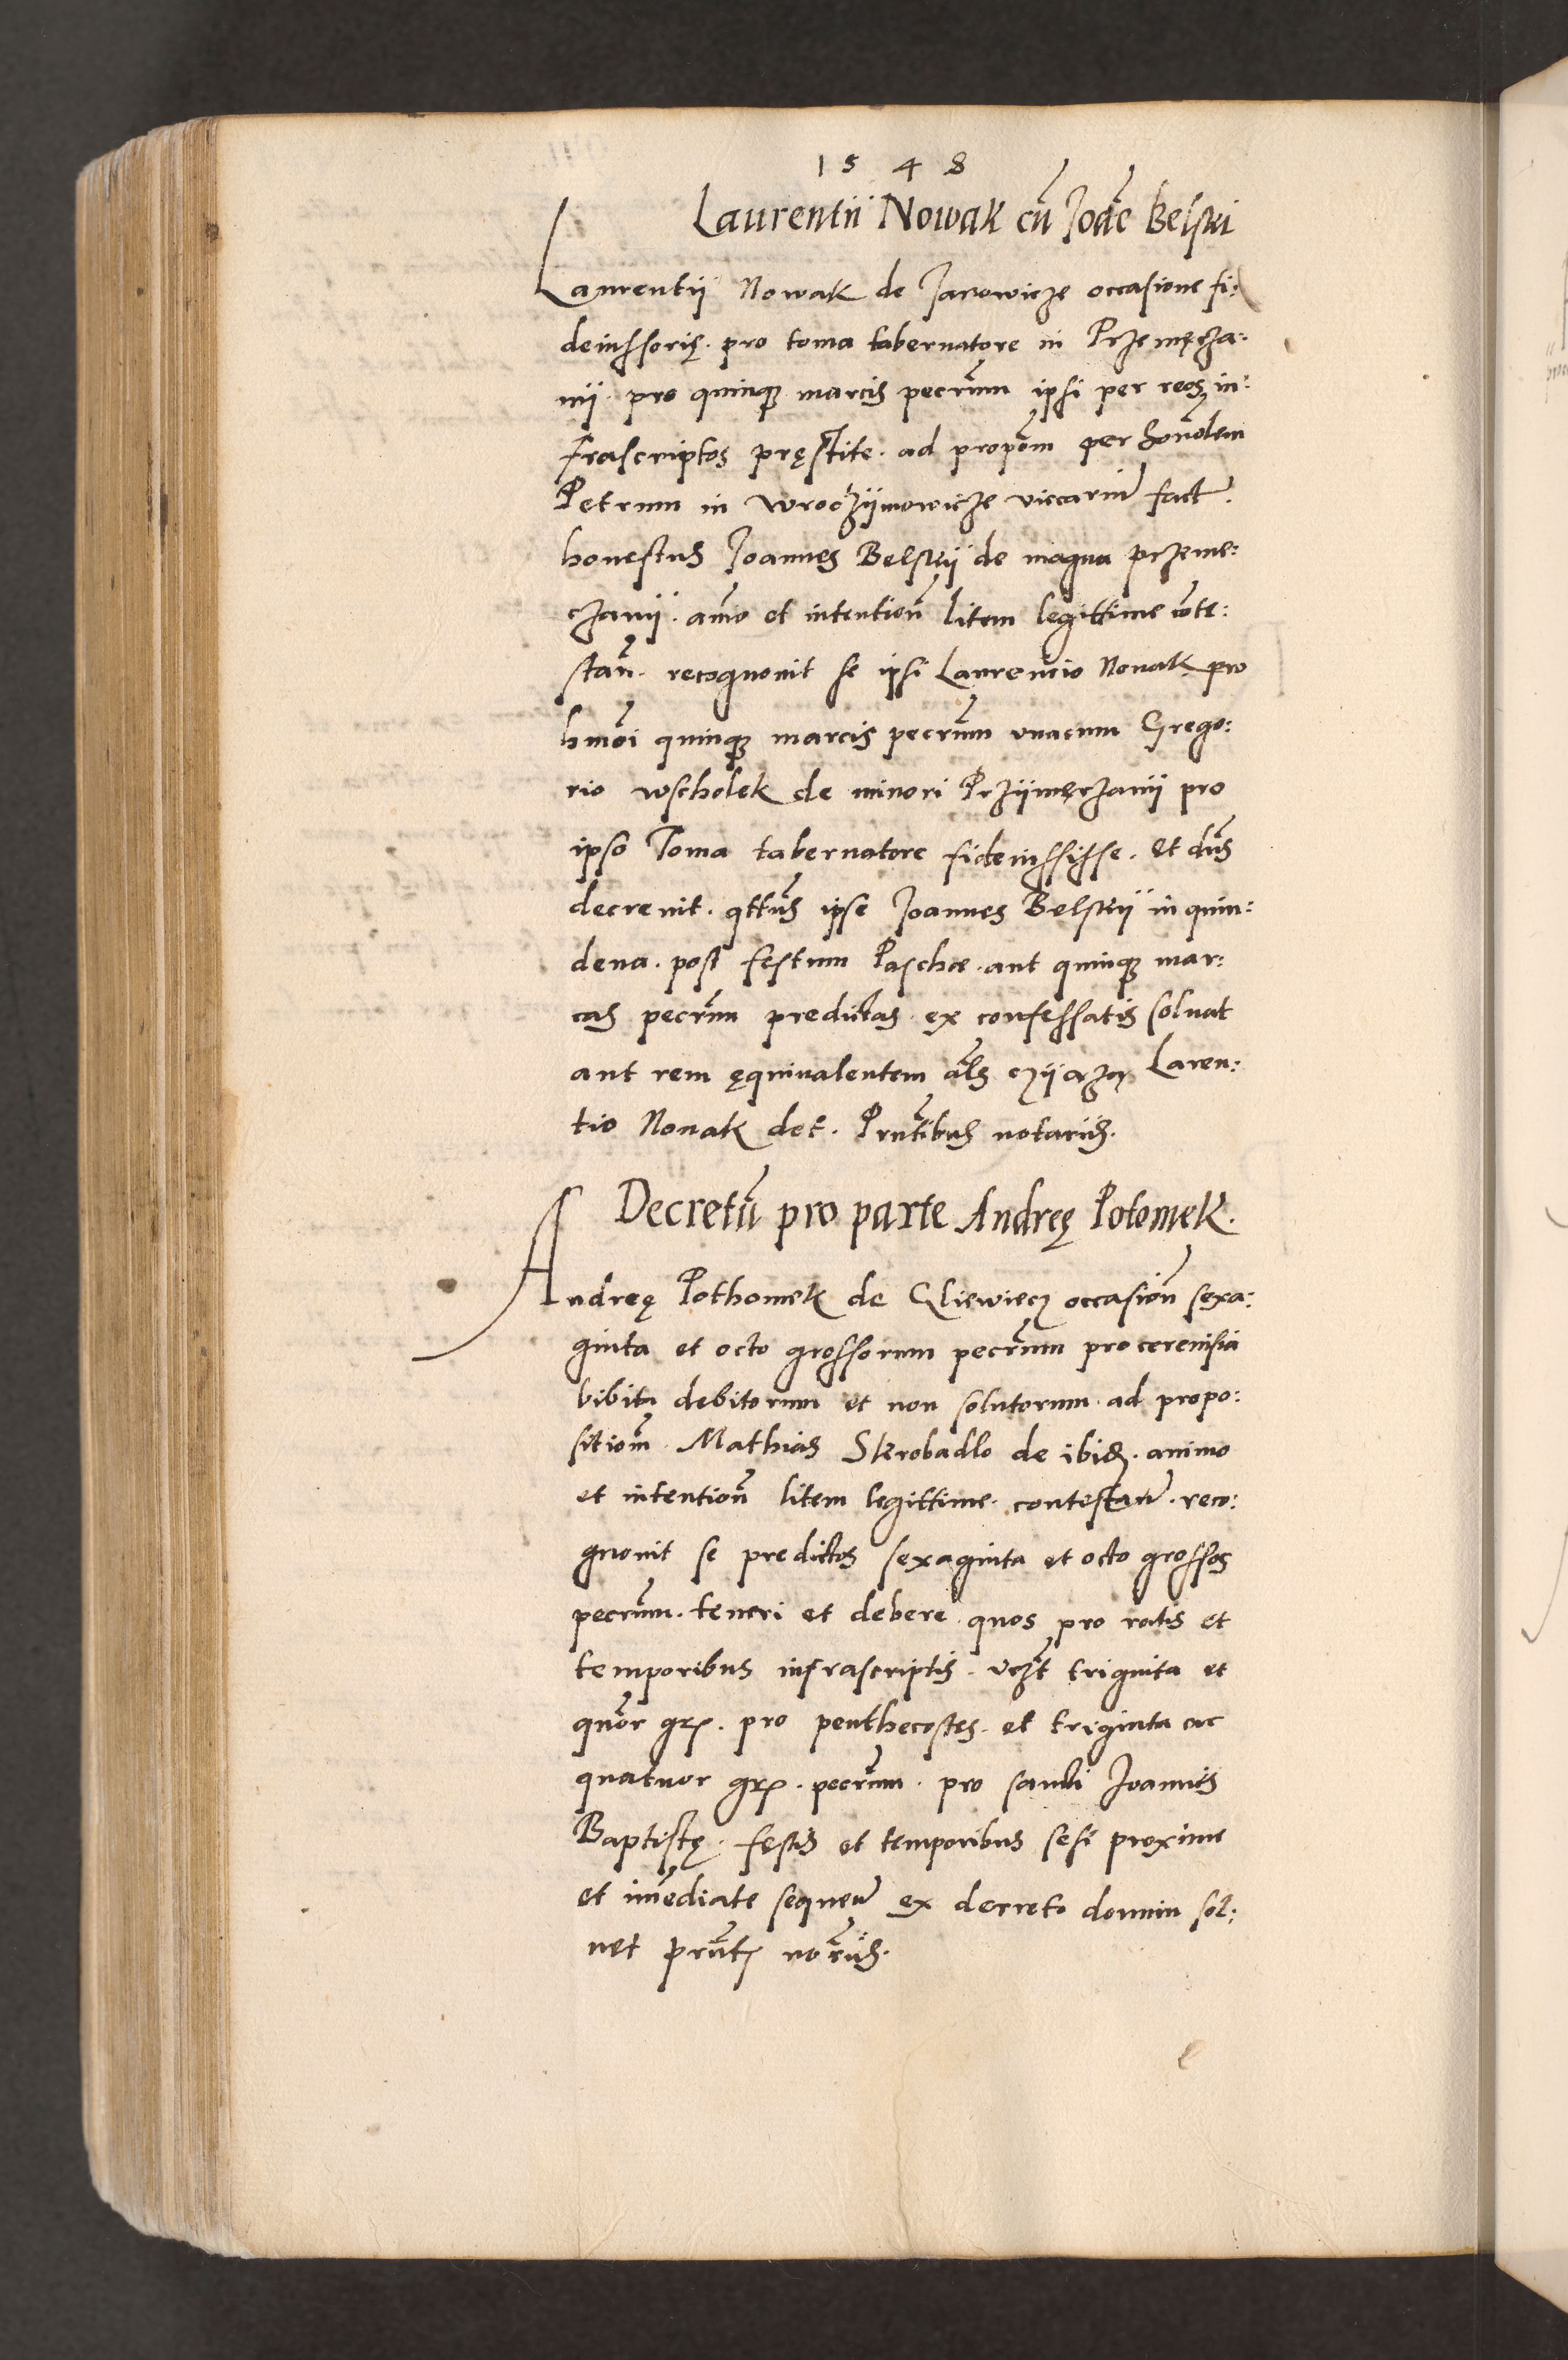 1548
Laurentii Nowak cū Joāē Belski
Laurentij Nowak de Janowicze occasione fi:
deiussorię. pro toma tabernatore in Przemęcza:
nij. pro quinque marcis pecrūm ipsi per reos in:
frascriptos pręstite. ad propōm per honōlem
Petrum in wroczijmowicze viccariū fact.
honestus Joannes Belskij de magna przeme:
czanij. aīmo et intentioñ litem legittime cōte:
stañ. recognouit se ipsi Laurencio Nouak pro
hmōi quinque marcis pecrūm vnacum Grego:
rio wscholek de minori Przijmęczanij pro
ipso Toma tabernatore fideiussisse. et dñs
decreuit. qttūs ipse Joannes Belskij in quin:
dena. post festum Paschæ. aut quinque mar:
cas pecrūm predictas ex confessatis soluat
aut rem ęquiualentem āls Lauren:
tio Nouak det. Prñtibus notarijs.
Decretū pro parte Andreę Potomek.
Andreę Pothomek de Gliewiecz occasioñ sexa:
ginta et octo grossorum pecrūm pro cereuisia
bibita debitorum et non solutorum. ad propo:
sitioñm. Mathias Skrobadlo de ibid. animo
et intentioñ litem legittime contestań. reco:
gnouit se predictos sexaginta et octo grossos
pecrūm. teneri et debere quos pro ratis et
temporibus infrascriptis. vczt triginta et
quōr grs. pro penthecostes. et triginta ac
quatuor grs. pecrūm. pro sancti Joannis
Baptistę. festis et temporibus sesi proxime
et imēdiate sequeñ ex decreto domini sol:
uet prñts norijs.